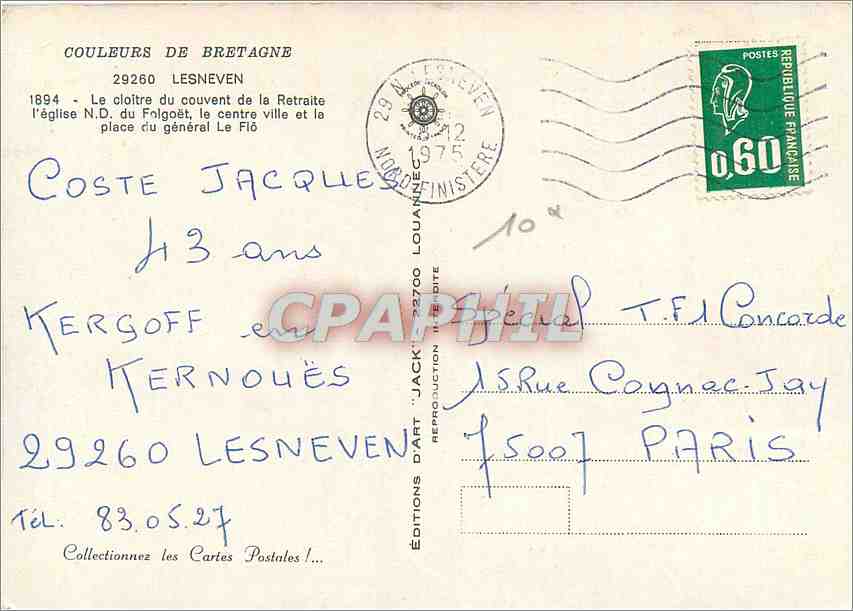 COULEURS DE BRETAGNE
29260 LESNEVEN
1894 - Le cloître du couvent de la Retraite
l'église N.D. du Folgoët, le centre ville et la
place du général Le Flô
COSTE JACQUES
43 ans
KERGOFF en
KERNOUËS
29260 LESNEVEN
Tél. 83.05.27
Collectionnez les Cartes Postales !...
EDITIONS D'ART "JACK" 22700 LOUANNEC
REPRODUCTION INTERDITE
29 N LESNEVEN
12
1975
NORD-FINISTERE
POSTES
REPUBLIQUE FRANÇAISE
0,60
10
CPAPHIL
Spécial T.F1 Concorde
15 Rue Cognac-Jay
75007 PARIS